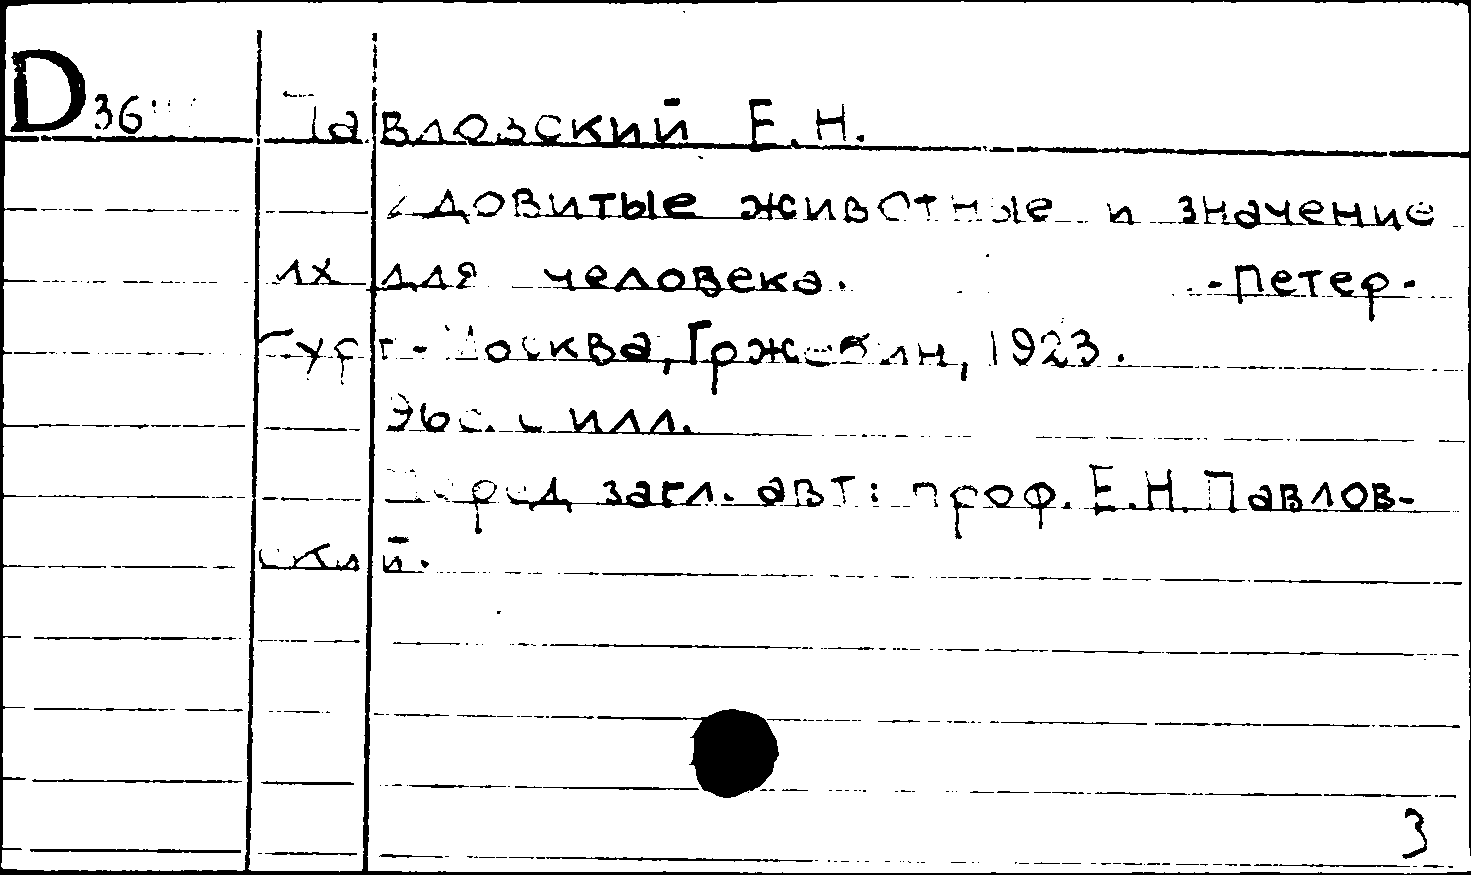 D36
Павловский Е.Н.
Ядовитые животные и значение
их для человека. - Петер-
бург - Москва, Гржебин, 1923.
96с. с илл.
Перед загл. авт: проф. Е.Н. Павлов-
ский.
3